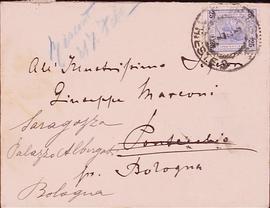 All' Illustrissimo Signor
Giuseppe Marconi
Saragozza
Pontecchio
Palazzo Albergati
pr. Bologna
Bologna